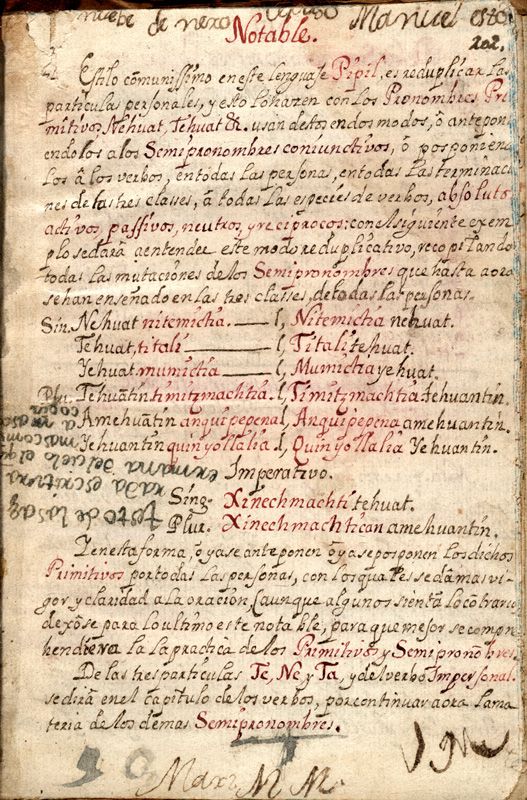 nuebe de nero Manuel
202.
Notable.
Estilo cõmunissimo en este lenguaje Pipil, es reduplicar las
particulas personales, y esto lo hazen con los Pronombres Pri
mitivos Nehuat, Tehuat &c. usan destos en dos modos, ô antepon
endolos a los Semipronombres coniunctivos, ô posponien
los â los verbos, en todas las personas, en todas las terminacio
nes de las tres classes, â todas las especies de verbos, absolutos
activos, passivos, neutros, y reciprocos: con el siguiente exem
plo se dara a entender este modo reduplicativo, recopilando
todas las mutaciones de los Semipronombres que hasta aora
se han enseñado en las tres classes, de todas las personas.
Sin. Nehuat nitemictia. l, Nitemictia nehuat.
Tehuat, titali l, Titali tehuat.
Yehuat mumictia l, Mumictia yehuat.
Plu. Tehuãtin timitzmachtia l, Timitzmachtia tehuantin.
Amehuãtin anquipepena l, Anquipepena amehuantin.
Yehuantin quinyollalia l, Quinyollalia Yehuantin.
Imperativo.
Sing. Xinechmachti tehuat.
Plur. Xinechmachtican amehuantin.
Y en esta forma, ô ya se anteponen ô ya se posponen los dichos
Primitivos por todas las personas, con los quales se da mas vi-
gor y claridad a la oracion (aunque algunos sientã lo cõtrario
dexose para lo ultimo este notable, para que mejor se compre
hendiera la practica de los Primitivos y Semipronõbres.
De las tres particulas Te, Ne, y Ta, y del verbo Impersonal
se dirâ en el capitulo de los verbos, por continuar aora la ma
teria de los demas Semipronombres.